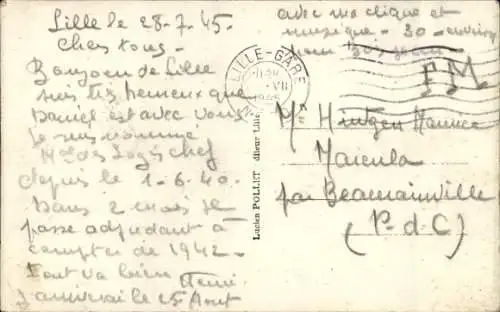 Lille le 28-7.45.
Chers tous -
Bonjour de Lille
suis très heureux que
Daniel est avec vous
je suis nommé
Mal des Logis chef
depuis le 1-6.40.
Dans 2 mois je
passe adjudant à
compter de 1942 -
Tout va bien Henri
J'arriverai le 25 Août
avec ma clique et
musique - 30 -
LILLE-GARE
FM
Mr Maurice
Maicula
par Beaurainville
(P-d-C)
Lucien POLLET